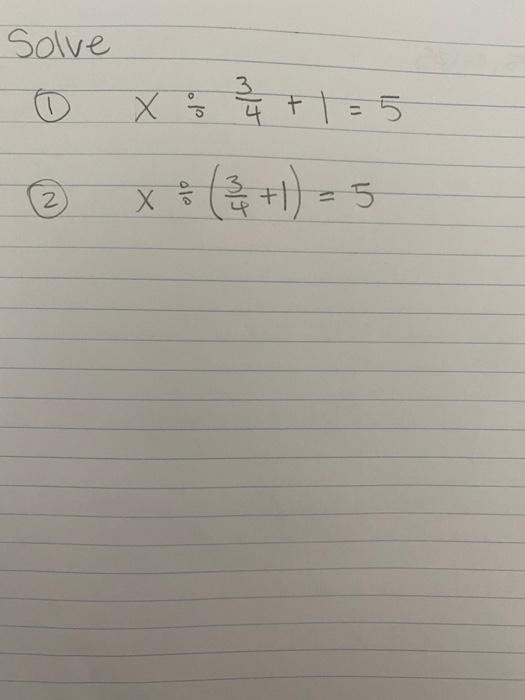 Solve
① x ÷ 3/4 + 1 = 5
② x ÷ (3/4 + 1) = 5